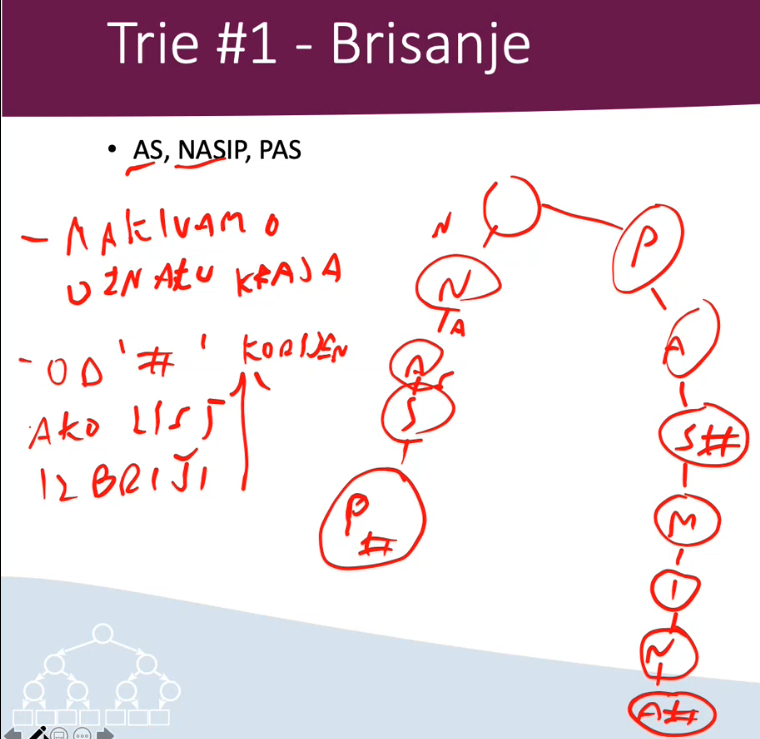 Trie #1 - Brisanje
• AS, NASIP, PAS
- MAKIVAMO
OZNAKU KRAJA
- OD '#' KORIJEN
AKO LIST
IZBRIŠI
N
N
A
A
S
S
P
#
P
A
S#
M
I
N
A#